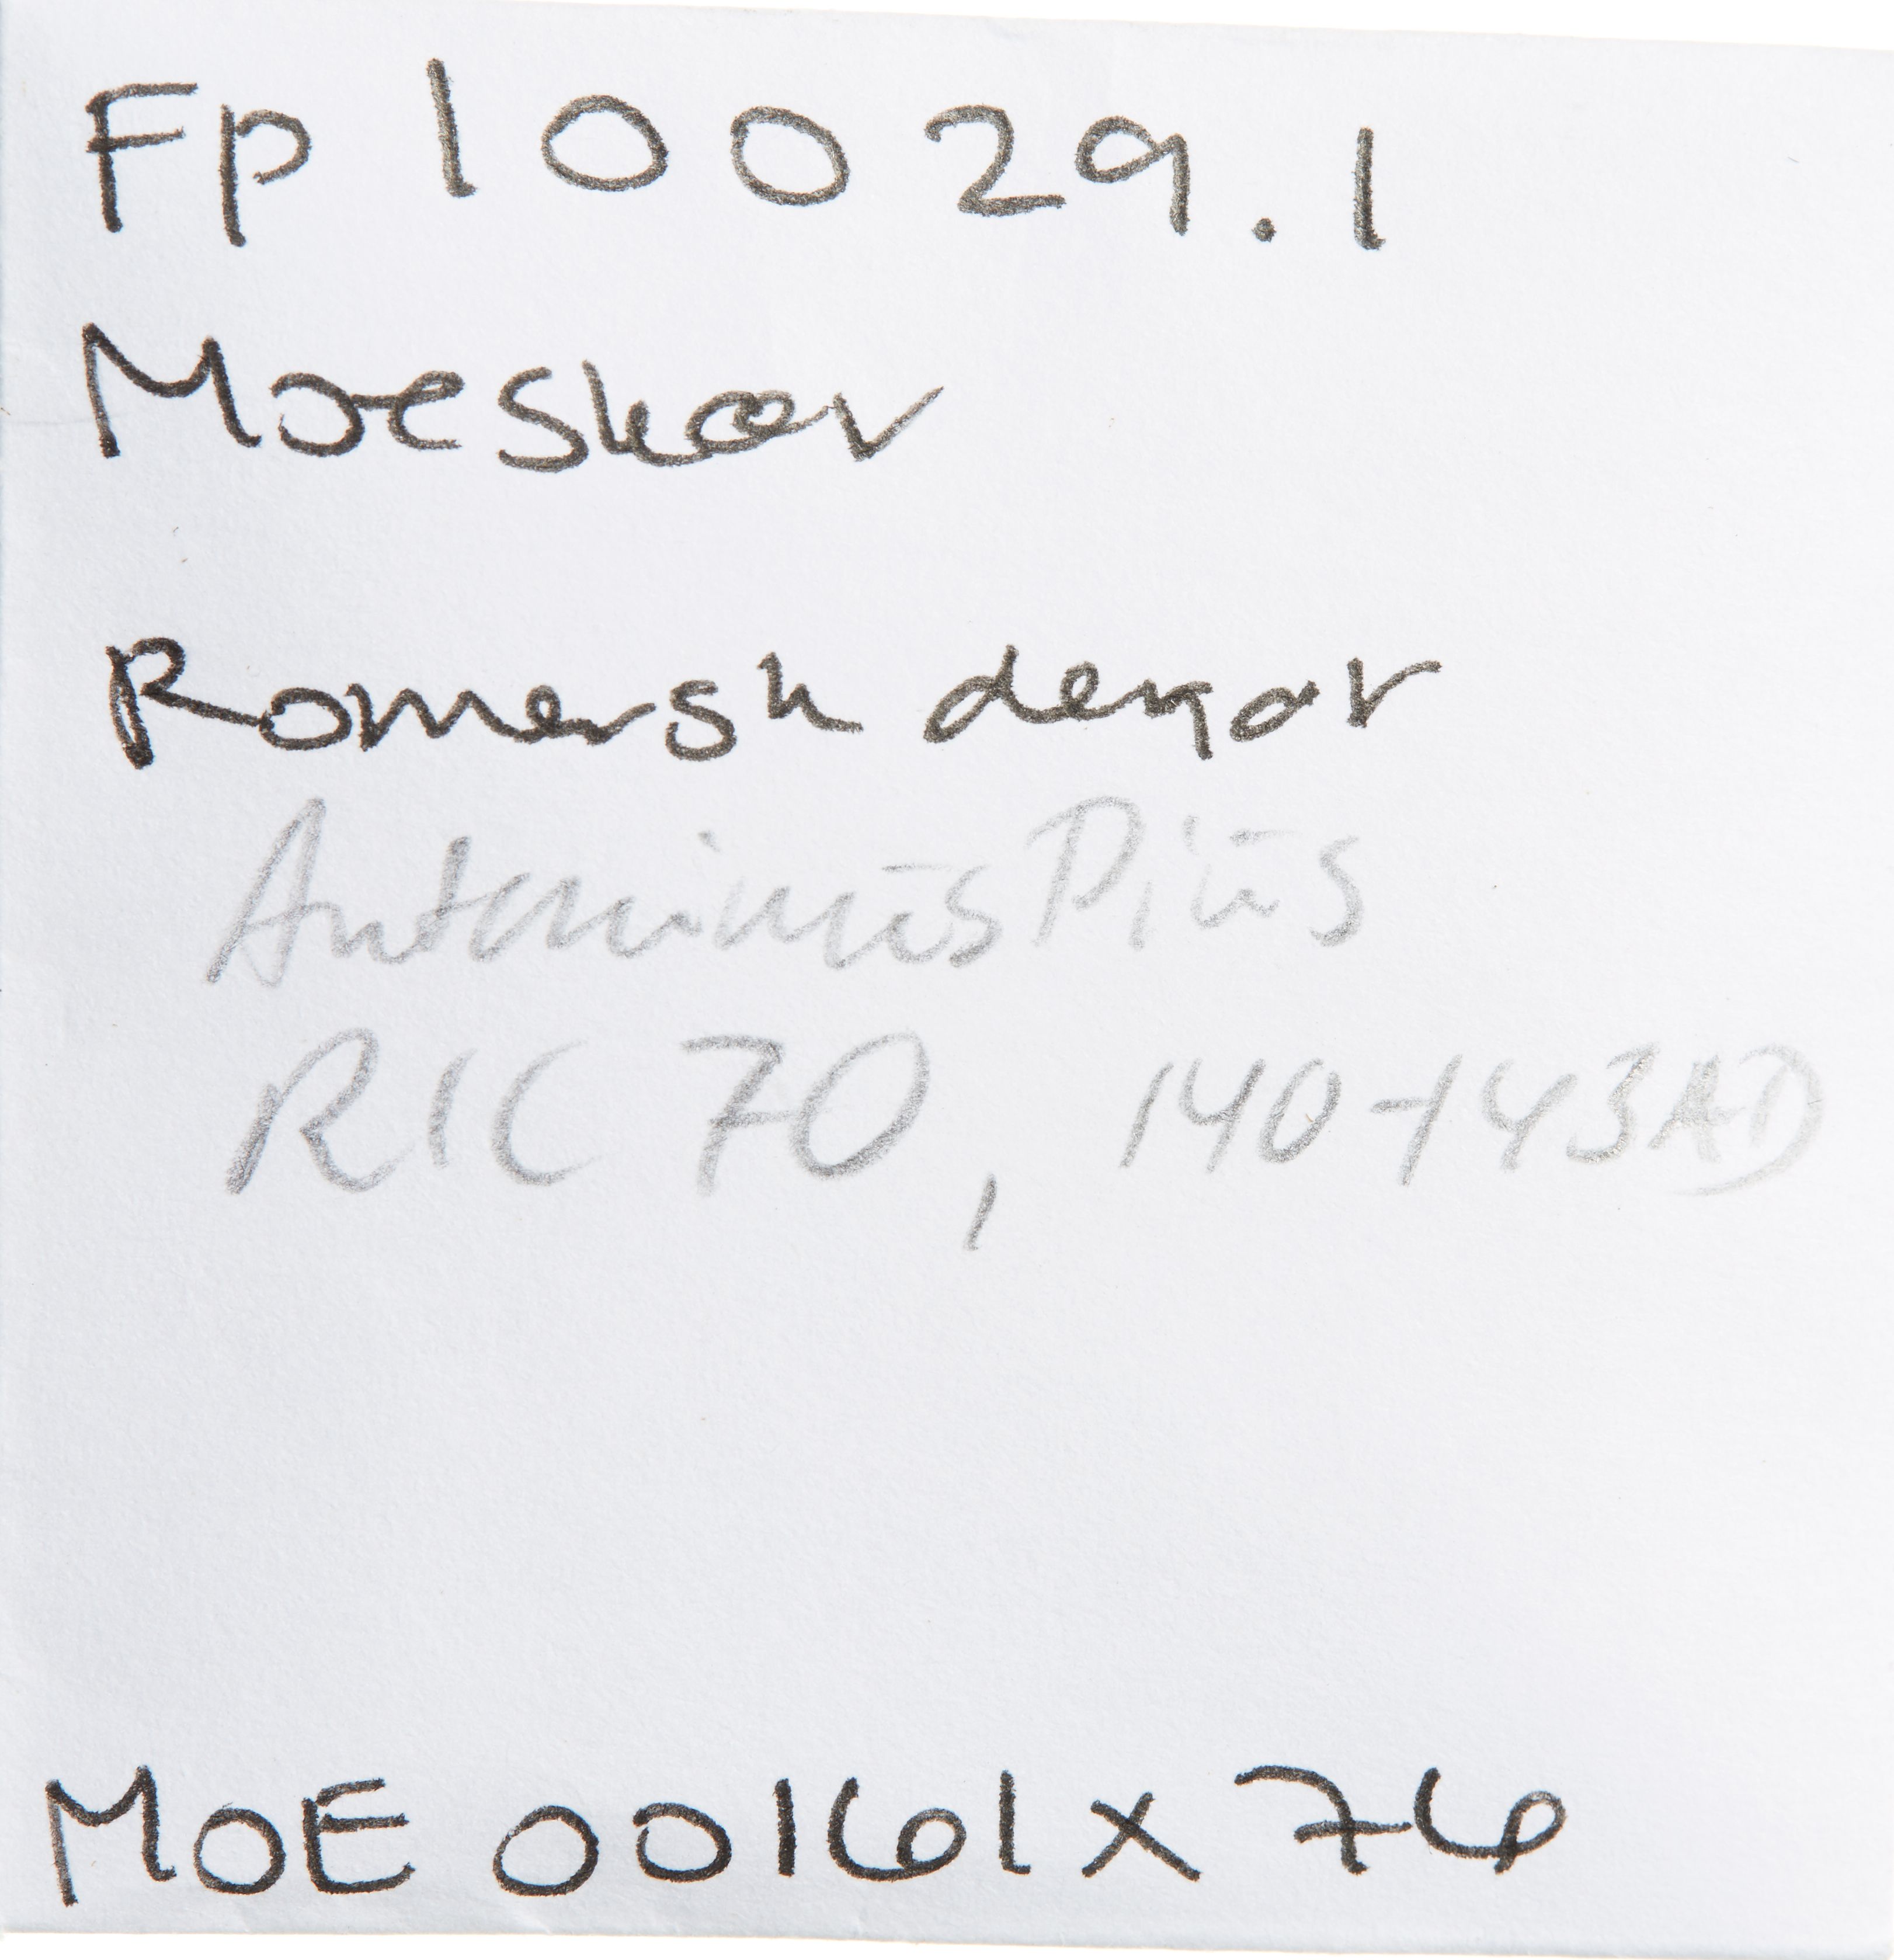 Fp 10029.1
Moeskær
Romersk denar
Antoninus Pius
RIC 70, 140-143AD
MOE 00161x76